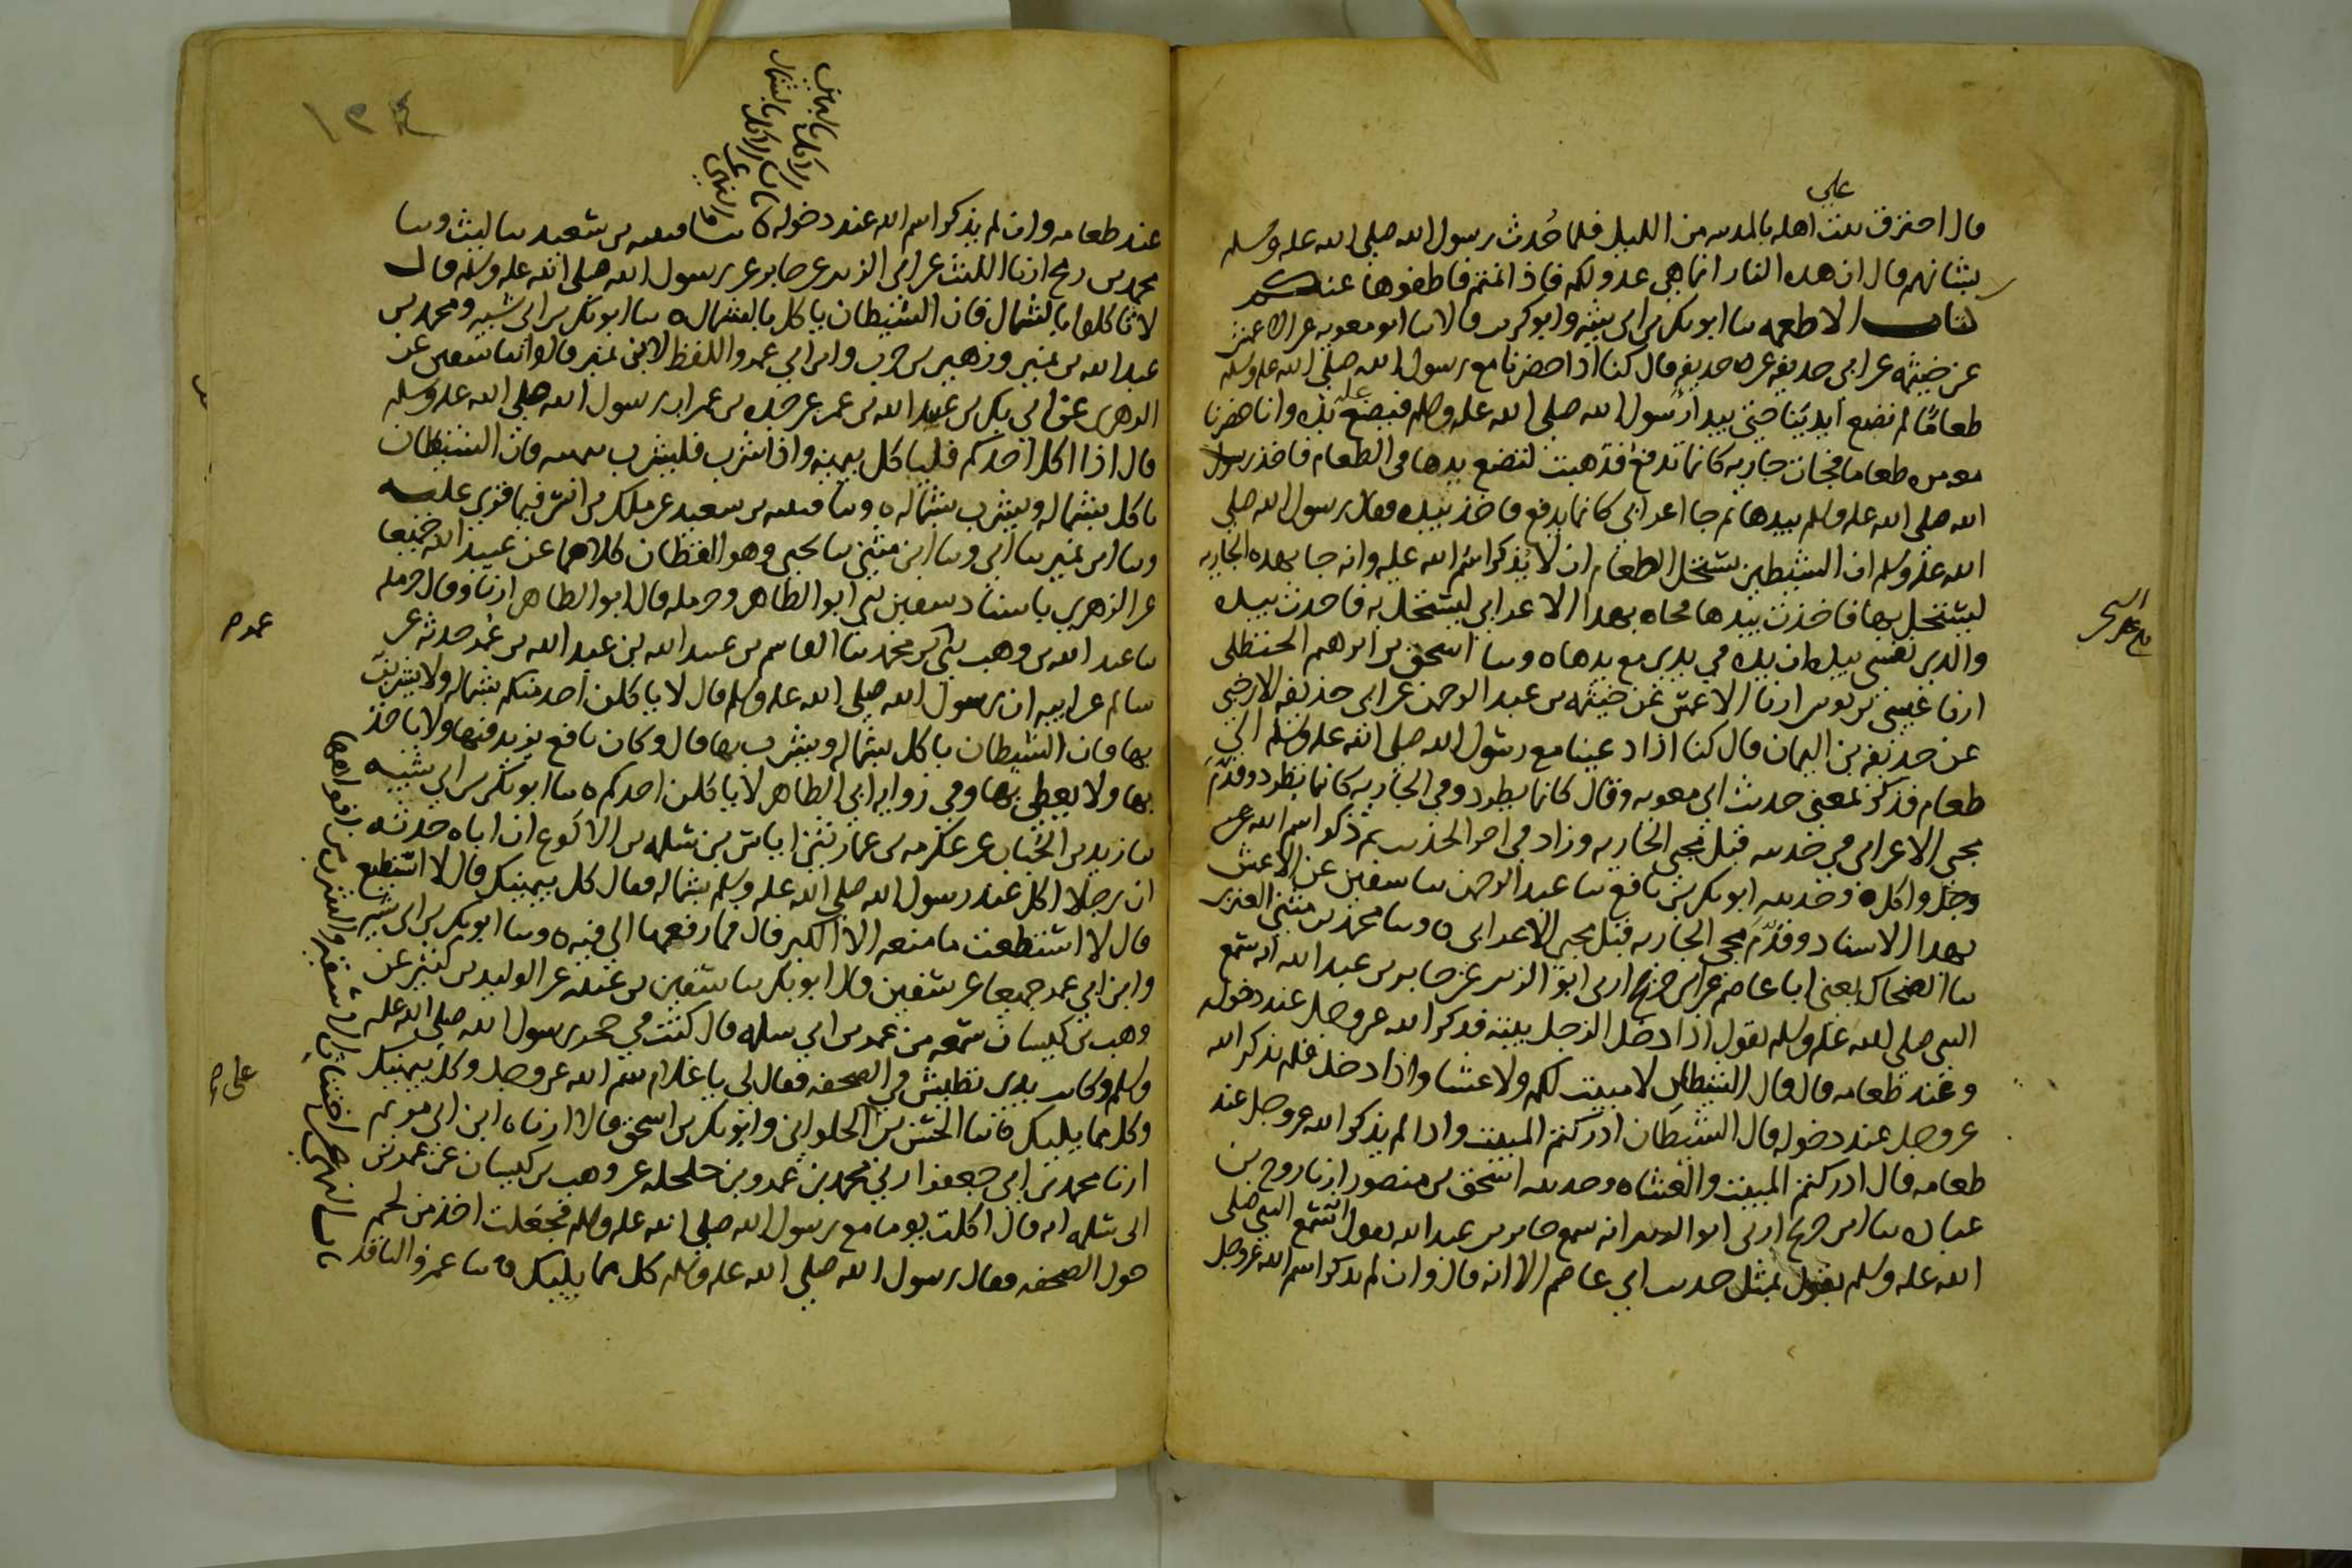 على
قال احترق بيت اهله بالمدينه من الليل فلما حُدث رسول الله صلى الله عليه وسلم
بشانهم قال ان هذه النار انما هي عدو لكم فاذا نمتم فاطفوها عنكم
كتاب الاطعمه ثنا ابو بكر بن ابي شيبه وابو كريب قالا ثنا ابو معويه عن الاعمش
عن خيثمه عن ابي حذيفه عن حذيفه قال كنا اذا حضرنا مع رسول الله صلى الله عليه وسلم
طعامًا لم نضع ايدينا حتى يبدا رسول الله صلى الله عليه وسلم فيضع يده وانا حضرنا
معه مره طعاما فجات جاريه كانما تدفع فذهبت لتضع يدها في الطعام فاخذ رسول
الله صلى الله عليه وسلم بيدها ثم جا اعرابي كانما يدفع فاخذ بيده فقال رسول الله صلى
الله عليه وسلم ان الشيطن يستحل الطعام ان لا يذكر اسم الله عليه وانه جا بهذه الجاريه
ليستحل بها فاخذت بيدها فجاه بهذا الاعرابي ليستحل به فاخذت بيده
والذي نفسي بيده ان يده في يدي مع يدها ه وثنا اسحق بن ابرهيم الحنظلي
ارنا عيسى بن يونس ارنا الاعمش عن خيثمه بن عبد الرحمن عن ابي حذيفه الارحبي
عن حذيفه بن اليمان قال كنا اذا دعينا مع رسول الله صلى الله عليه وسلم الى
طعام فذكر بمعنى حديث ابي معويه وقال كانما يطرد وفي الجاريه كانما تطرد وقدّمَ
مجي الاعرابي في حديثه قبل مجي الجاريه وزاد في اخر الحديث ثم ذكر اسم الله عز
وجل واكل ه وحدثنيه ابو بكر بن نافع ثنا عبد الرحمن ثنا سفين عن الاعمش
بهذا الاسناد وقدَّمَ مجي الجاريه قبل مجي الاعرابي ه وثنا محمد بن مثنى العنزي
ثنا الضحاك يعني ابا عاصم عن ابن جريج ارني ابو الزبير عن جابر بن عبد الله انه سمع
النبي صلى الله عليه وسلم يقول اذا دخل الرجل بيته فذكر الله عز وجل عند دخوله
وعند طعامه قال قال الشيطان لا مبيت لكم ولا عشا واذا دخل فلم يذكر الله
عز وجل عند دخوله قال الشيطان ادركتم المبيت واذا لم يذكر الله عز وجل عند
طعامه قال ادركتم المبيت والعشا ه وحدثنيه اسحق بن منصور ارنا روح بن
عباده ثنا ابن جريج ارني ابو الزبير انه سمع جابر بن عبد الله يقول انه سمع النبي صلى
الله عليه وسلم يقول بمثل حديث ابي عاصم الا انه قال وان لم يذكر اسم الله عز وجل
١٢٤
باب الاكل باليمين
النهي عن
الاكل بالشمال
عند طعامه وان لم يذكر اسم الله عند دخوله ه ثنا قتيبه بن سعيد ثنا ليث وثنا
محمد بن رمح ارنا الليث عن ابي الزبير عن جابر عن رسول الله صلى الله عليه وسلم قال
لا تاكلوا بالشمال فان الشيطان ياكل بالشمال ه ثنا ابو بكر بن ابي شيبه ومحمد بن
عبد الله بن نمير وزهير بن حرب وابن ابي عمر واللفظ لابن نمير قالوا ثنا سفين عن
الزهري عن ابي بكر بن عبيد الله بن عمر عن جده بن عمر ان رسول الله صلى الله عليه وسلم
قال اذا اكل احدكم فلياكل بيمينه واذا شرب فليشرب بيمينه فان الشيطان
ياكل بشماله ويشرب بشماله ه وثنا قتيبه بن سعيد عن ملك بن انس فيما قرى عليه
وثنا ابن نمير ثنا ابي وثنا ابن مثنى ثنا يحيى وهو القطان كلاهما عن عبيد الله جميعا
عن الزهري باسناد سفين ثني ابو الطاهر وحرمله قال ابو الطاهر ارنا وقال حرمله
ثنا عبد الله بن وهب ثني عمر بن محمد ثنا القاسم بن عبيد الله بن عبد الله بن عمر حدثه عن
سالم عن ابيه ان رسول الله صلى الله عليه وسلم قال لا ياكلن احد منكم بشماله ولا يشربن
بها فان الشيطان ياكل بشماله ويشرب بها قال وكان نافع يزيد فيها ولا ياخذ
بها ولا يعطي بها وفي روايه ابي الطاهر لا ياكلن احدكم ه ثنا ابو بكر بن ابي شيبه
ثنا زيد بن الحباب عن عكرمه بن عمار ثني اياس بن سلمه بن الاكوع ان اباه حدثه
ان رجلا اكل عند رسول الله صلى الله عليه وسلم بشماله فقال كل بيمينك قال لا استطيع
قال لا استطعت ما منعه الا الكبر قال فما رفعها الى فيه ه وثنا ابو بكر بن ابي شيبه
وابن ابي عمر جميعا عن سفين قال ابو بكر ثنا سفين بن عيينه عن الوليد بن كثير عن
وهب بن كيسان سمعه من عمر بن ابي سلمه قال كنت في حجر رسول الله صلى الله عليه
وسلم وكانت يدي تطيش في الصحفه فقال لي يا غلام سم الله عز وجل وكل بيمينك
وكل مما يليك ه ثنا الحسن بن الحلواني وابو بكر بن اسحق قالا ارنا ه ابن ابي مريم
ارنا محمد بن ابي جعفر ارني محمد بن عمرو بن حلحله عن وهب بن كيسان عن عمر بن
ابي سلمه انه قال اكلت يوما مع رسول الله صلى الله عليه وسلم فجعلت اخذ من لحم
حول الصحفه فقال رسول الله صلى الله عليه وسلم كل مما يليك ه ثنا عمرو الناقد
باب النهي عن اختناث الاسقيه والشرب من افواهها